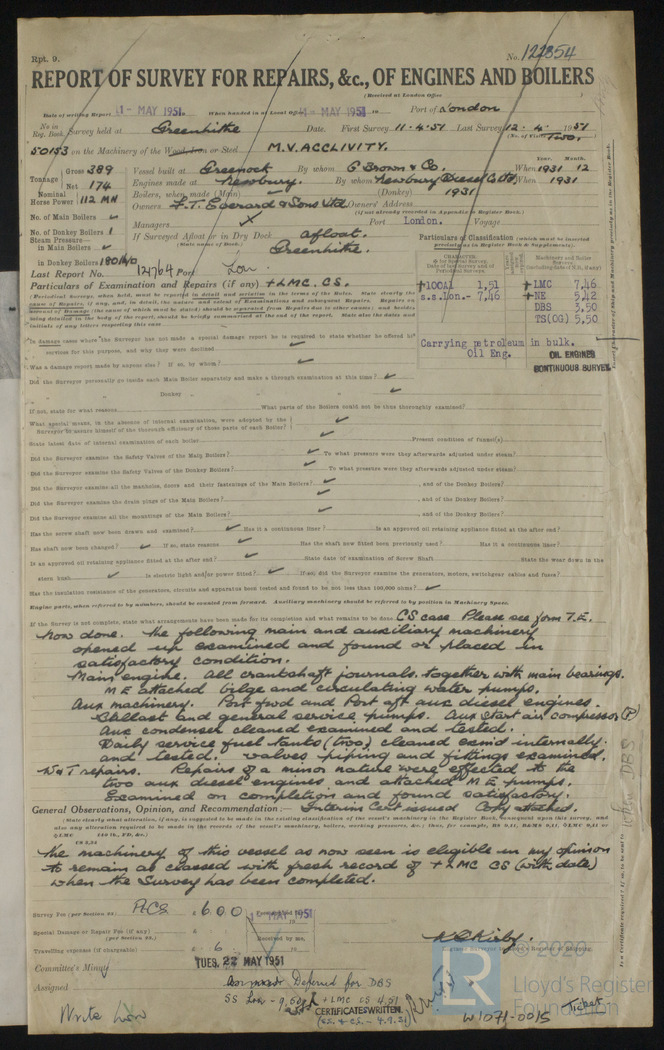 Rpt. 9.
No. 122854
REPORT OF SURVEY FOR REPAIRS, &c., OF ENGINES AND BOILERS
(Received at London Office
Date of writing Report 1 - MAY 1951. When handed in at Local Office 1 - MAY 1951 19 Port of London
No in Reg. Book. Survey held at Greenhithe Date. First Survey 11.4.51 Last Survey 12.4.1951
(No. of Visits Two.)
50153 on the Machinery of the Wood, Iron or Steel M.V. ACCLIVITY.
Tonnage Gross 389 Net 174
Vessel built at Greenock By whom G Brown & Co. When 1931 12
Year. Month.
Engines made at Newbury. By whom Newbury Diesel Co Ltd When 1931
Nominal Horse Power 112 MN
Boilers, when made (Main) (Donkey) 1931
No. of Main Boilers
Owners F.T. Everard & Sons Ltd Owners' Address
(if not already recorded in Appendix to Register Book.)
No. of Donkey Boilers 1
Managers Port London. Voyage
Steam Pressure in Main Boilers
If Surveyed Afloat or in Dry Dock afloat.
(State name of Dock.) Greenhithe.
in Donkey Boilers
Last Report No. 12764 Port Lon.
Particulars of Classification (which must be inserted precisely as in Register Book & Supplements).
+LOCAl 1,51
s.s.Lon.- 7,46
+LMC 7,46
+NE 5,12
DBS 3,50
TS(OG) 5,50
Carrying petroleum in bulk.
Oil Eng.
OIL ENGINES
CONTINUOUS SURVEY.
Particulars of Examination and Repairs (if any) +LMC. CS.
In damage cases where the Surveyor has not made a special damage report he is required to state whether he offered his services for this purpose, and why they were declined
Was a damage report made by anyone else? If so, by whom?
Did the Surveyor personally go inside each Main Boiler separately and make a thorough examination at this time?
Donkey
If not, state for what reasons What parts of the Boilers could not be thus thoroughly examined?
What special means, in the absence of internal examination, were adopted by the Surveyor to assure himself of the thorough efficiency of those parts of each Boiler?
State latest date of internal examination of each boiler Present condition of funnel(s)
Did the Surveyor examine the Safety Valves of the Main Boilers? To what pressure were they afterwards adjusted under steam?
Did the Surveyor examine the Safety Valves of the Donkey Boilers? To what pressure were they afterwards adjusted under steam?
Did the Surveyor examine all the manholes, doors and their fastenings of the Main Boilers? , and of the Donkey Boilers?
Did the Surveyor examine the drain plugs of the Main Boilers? , and of the Donkey Boilers?
Did the Surveyor examine all the mountings of the Main Boilers? , and of the Donkey Boilers?
Has the screw shaft now been drawn and examined? Has it a continuous liner? Is an approved oil retaining appliance fitted at the after end?
Has shaft now been changed? If so, state reasons Has the shaft now fitted been previously used? Has it a continuous liner?
Is an approved oil retaining appliance fitted at the after end? State date of examination of Screw Shaft State the wear down in the
stern bush. Is electric light and/or power fitted? If so, did the Surveyor examine the generators, motors, switchgear cables and fuses?
Has the insulation resistance of the generators, circuits and apparatus been tested and found to be not less than 100,000 ohms?
Engine parts, when referred to by numbers, should be counted from forward. Auxiliary machinery should be referred to by position in Machinery Space.
If the Survey is not complete, state what arrangements have been made for its completion and what remains to be done CS case Please see form T.E.
Now done. The following main and auxiliary machinery
opened up examined and found or placed in
satisfactory condition.
Main engine. All crankshaft journals together with main bearings.
M E attached bilge and circulating water pumps.
Aux machinery. Port fwd and Port aft aux diesel engines.
Ballast and general service pumps. Aux start air compressor (P)
Aux condenser cleaned examined and tested.
Daily service fuel tanks (two) cleaned exmd internally
and tested. Valves piping and fittings examined.
W&T repairs. Repairs of a minor nature were effected to the
two aux diesel engines and attached M E pumps.
Examined on completion and found satisfactory.
General Observations, Opinion, and Recommendation:— Interim Cert issued Copy attached.
The machinery of this vessel as now seen is eligible in my opinion
to remain as classed with fresh record of +LMC CS (with date)
when the Survey has been completed.
Survey Fee (per Section 29) £ 6.0.0
Special Damage or Repair Fee (if any) (per Section 29.) £
Travelling expenses (if chargeable) £ 6
Received by me,
Committee's Minute TUES. 22 MAY 1951
Assigned Deferred for DBS
+LMC CS 4.51
CERTIFICATE WRITTEN
Write Lon
Ticket
W1071-0015
© 2020
Lloyd's Register
Foundation
LR